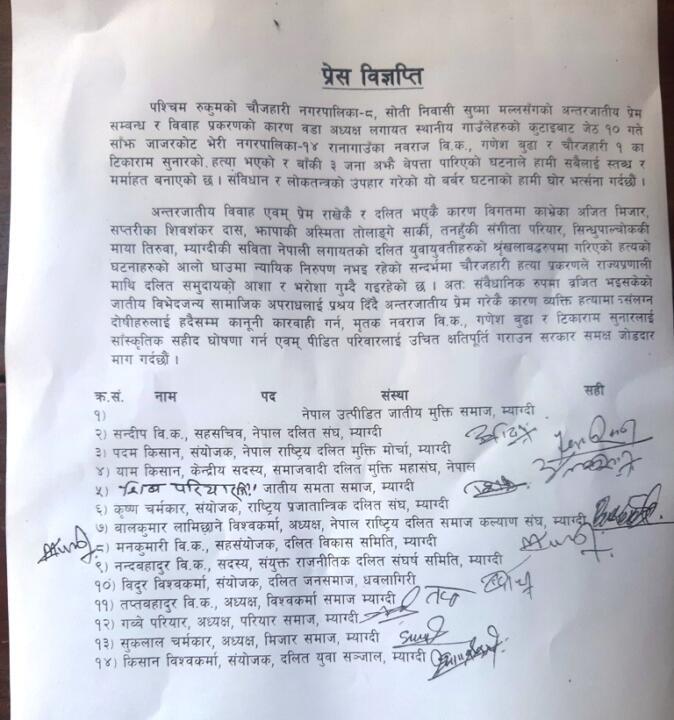 प्रेस विज्ञप्ति
पश्चिम रुकुमको चौजहारी नगरपालिका-८, सोती निवासी सुष्मा मल्लसँगको अन्तरजातीय प्रेम
सम्बन्ध र विवाह प्रकरणको कारण वडा अध्यक्ष लगायत स्थानीय गाउँलेहरुको कुटाइबाट जेठ १० गते
साँझ जाजरकोट भेरी नगरपालिका-१४ रानागाउँका नवराज वि.क., गणेश बुढा र चौरजहारी १ का
टिकाराम सुनारको. हत्या भएको र बाँकी ३ जना अझै बेपत्ता पारिएको घटनाले हामी सबैलाई स्तब्ध र
मर्माहत बनाएको छ । संविधान र लोकतन्त्रको उपहार गरेको यो बर्बर घटनाको हामी घोर भर्त्सना गर्दछौं ।
अन्तरजातीय विवाह एवम् प्रेम राखेकै र दलित भएकै कारण विगतमा काभ्रेका अजित मिजार,
सप्तरीका शिवशंकर दास, झापाकी अस्मिता तोलाङ्गे सार्की, तनहुँकी संगीता परियार, सिन्धुपाल्चोककी
माया तिरुवा, म्याग्दीकी सविता नेपाली लगायतको दलित युवायुवतीहरुको श्रृंखलावद्धरुपमा गरिएको हत्यको
घटनाहरुको आलो घाउमा न्यायिक निरुपण नभइ रहेको सन्दर्भमा चौरजहारी हत्या प्रकरणले राज्यप्रणाली
माथि दलित समुदायको आशा र भरोशा गुम्दै गइरहेको छ । अतः संवैधानिक रुपमा वर्जित भइसकेको
जातीय विभेदजन्य सामाजिक अपराधलाई प्रश्रय दिँदै अन्तरजातीय प्रेम गरेकै कारण व्यक्ति हत्यामा संलग्न
दोषीहरुलाई हदैसम्म कानूनी कारवाही गर्न, मृतक नवराज वि.क., गणेश बुढा र टिकाराम सुनारलाई
साँस्कृतिक सहीद घोषणा गर्न एवम् पीडित परिवारलाई उचित क्षतिपूर्ति गराउन सरकार समक्ष जोडदार
माग गर्दछौं ।
क्र.सं. नाम पद संस्था सही
१) नेपाल उत्पीडित जातीय मुक्ति समाज, म्याग्दी
२) सन्दीप वि.क., सहसचिव, नेपाल दलित संघ, म्याग्दी
३) पदम किसान, संयोजक, नेपाल राष्ट्रिय दलित मुक्ति मोर्चा, म्याग्दी
४) याम किसान, केन्द्रीय सदस्य, समाजवादी दलित मुक्ति महासंघ, नेपाल
५) शिब परियार जातीय समता समाज, म्याग्दी
६) कृष्ण चर्मकार, संयोजक, राष्ट्रिय प्रजातान्त्रिक दलित संघ, म्याग्दी
७) बालकुमार लामिछाने विश्वकर्मा, अध्यक्ष, नेपाल राष्ट्रिय दलित समाज कल्याण संघ, म्याग्दी
८) मनकुमारी वि.क., सहसंयोजक, दलित विकास समिति, म्याग्दी
९) नन्दबहादुर वि.क., सदस्य, संयुक्त राजनीतिक दलित संघर्ष समिति, म्याग्दी
१०) विदुर विश्वकर्मा, संयोजक, दलित जनसमाज, धवलागिरी
११) तप्तबहादुर वि.क., अध्यक्ष, विश्वकर्मा समाज म्याग्दी
१२) गव्वे परियार, अध्यक्ष, परियार समाज, म्याग्दी
१३) सुकलाल चर्मकार, अध्यक्ष, मिजार समाज, म्याग्दी
१४) किसान विश्वकर्मा, संयोजक, दलित युवा सञ्जाल, म्याग्दी